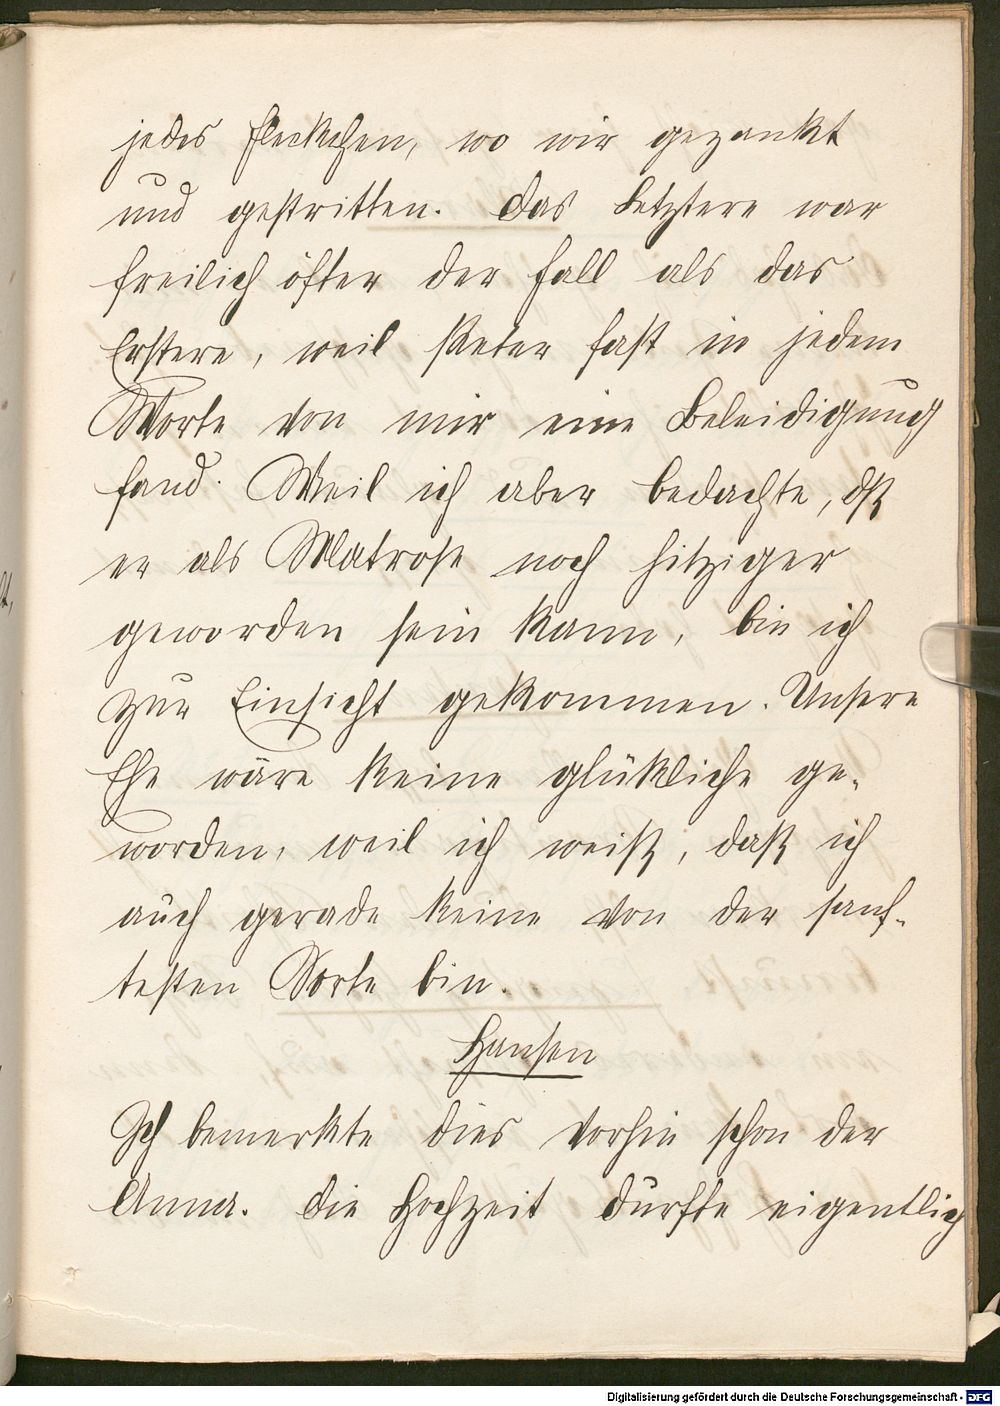 jedes Fleckchen, wo wir gezankt
und gestritten. Das Letztere war
freilich öfter der Fall als das
Erstere, weil Peter fast in jedem
Worte von mir eine Beleidigung
fand. Weil ich aber bedachte, dß
er als Matrose noch hitziger
geworden sein kann, bin ich
zur Einsicht gekommen. Unsere
Ehe wäre keine glükliche ge-
worden, weil ich weiß, daß ich
auch gerade keine von der sanf-
testen Sorte bin.
Hansen
Ich bemerkte dies vorhin schon der
Anna. Die Hochzeit dürfte eigentlich
Digitalisierung gefördert durch die Deutsche Forschungsgemeinschaft - DFG